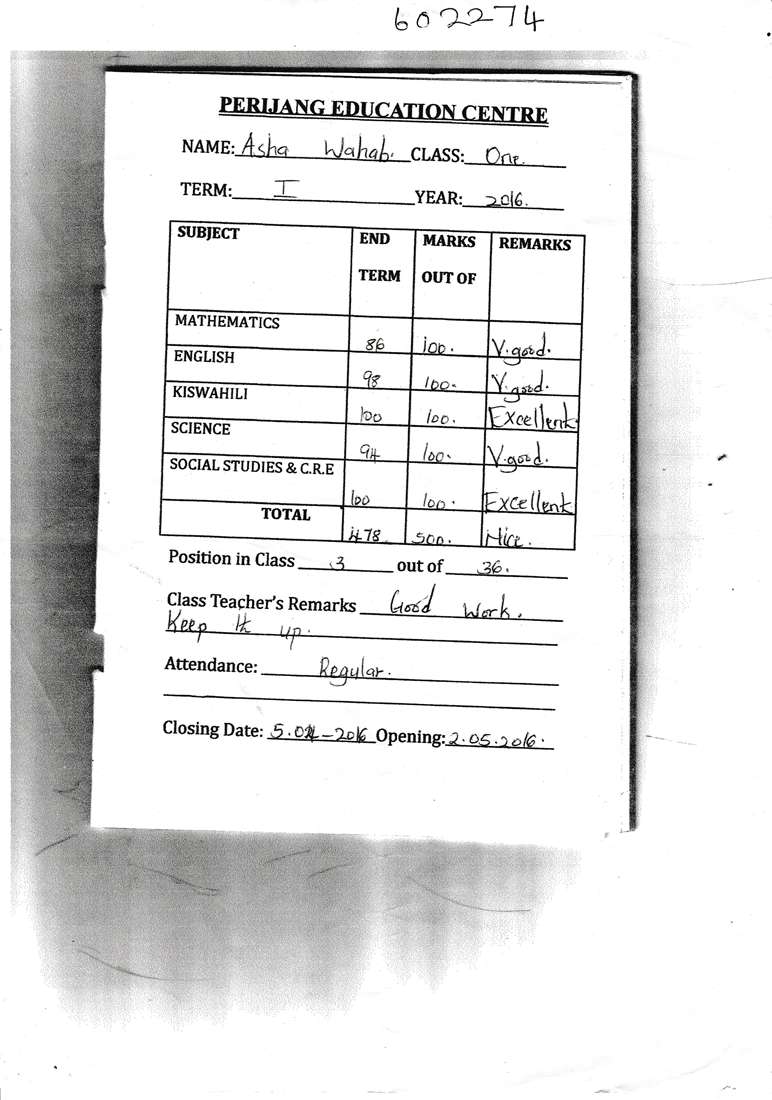 602274
PERIJANG EDUCATION CENTRE
NAME: Asha Wahab. CLASS: One.
TERM: I YEAR: 2016.
SUBJECT END TERM MARKS OUT OF REMARKS
MATHEMATICS 86 100. V.good.
ENGLISH 98 100. V.good.
KISWAHILI 100 100. Excellent
SCIENCE 94 100. V.good.
SOCIAL STUDIES & C.R.E 100 100. Excellent
TOTAL 478 500. Nice.
Position in Class 3 out of 36.
Class Teacher's Remarks Good Work.
Keep It up.
Attendance: Regular.
Closing Date: 5.04-2016 Opening: 2.05.2016.